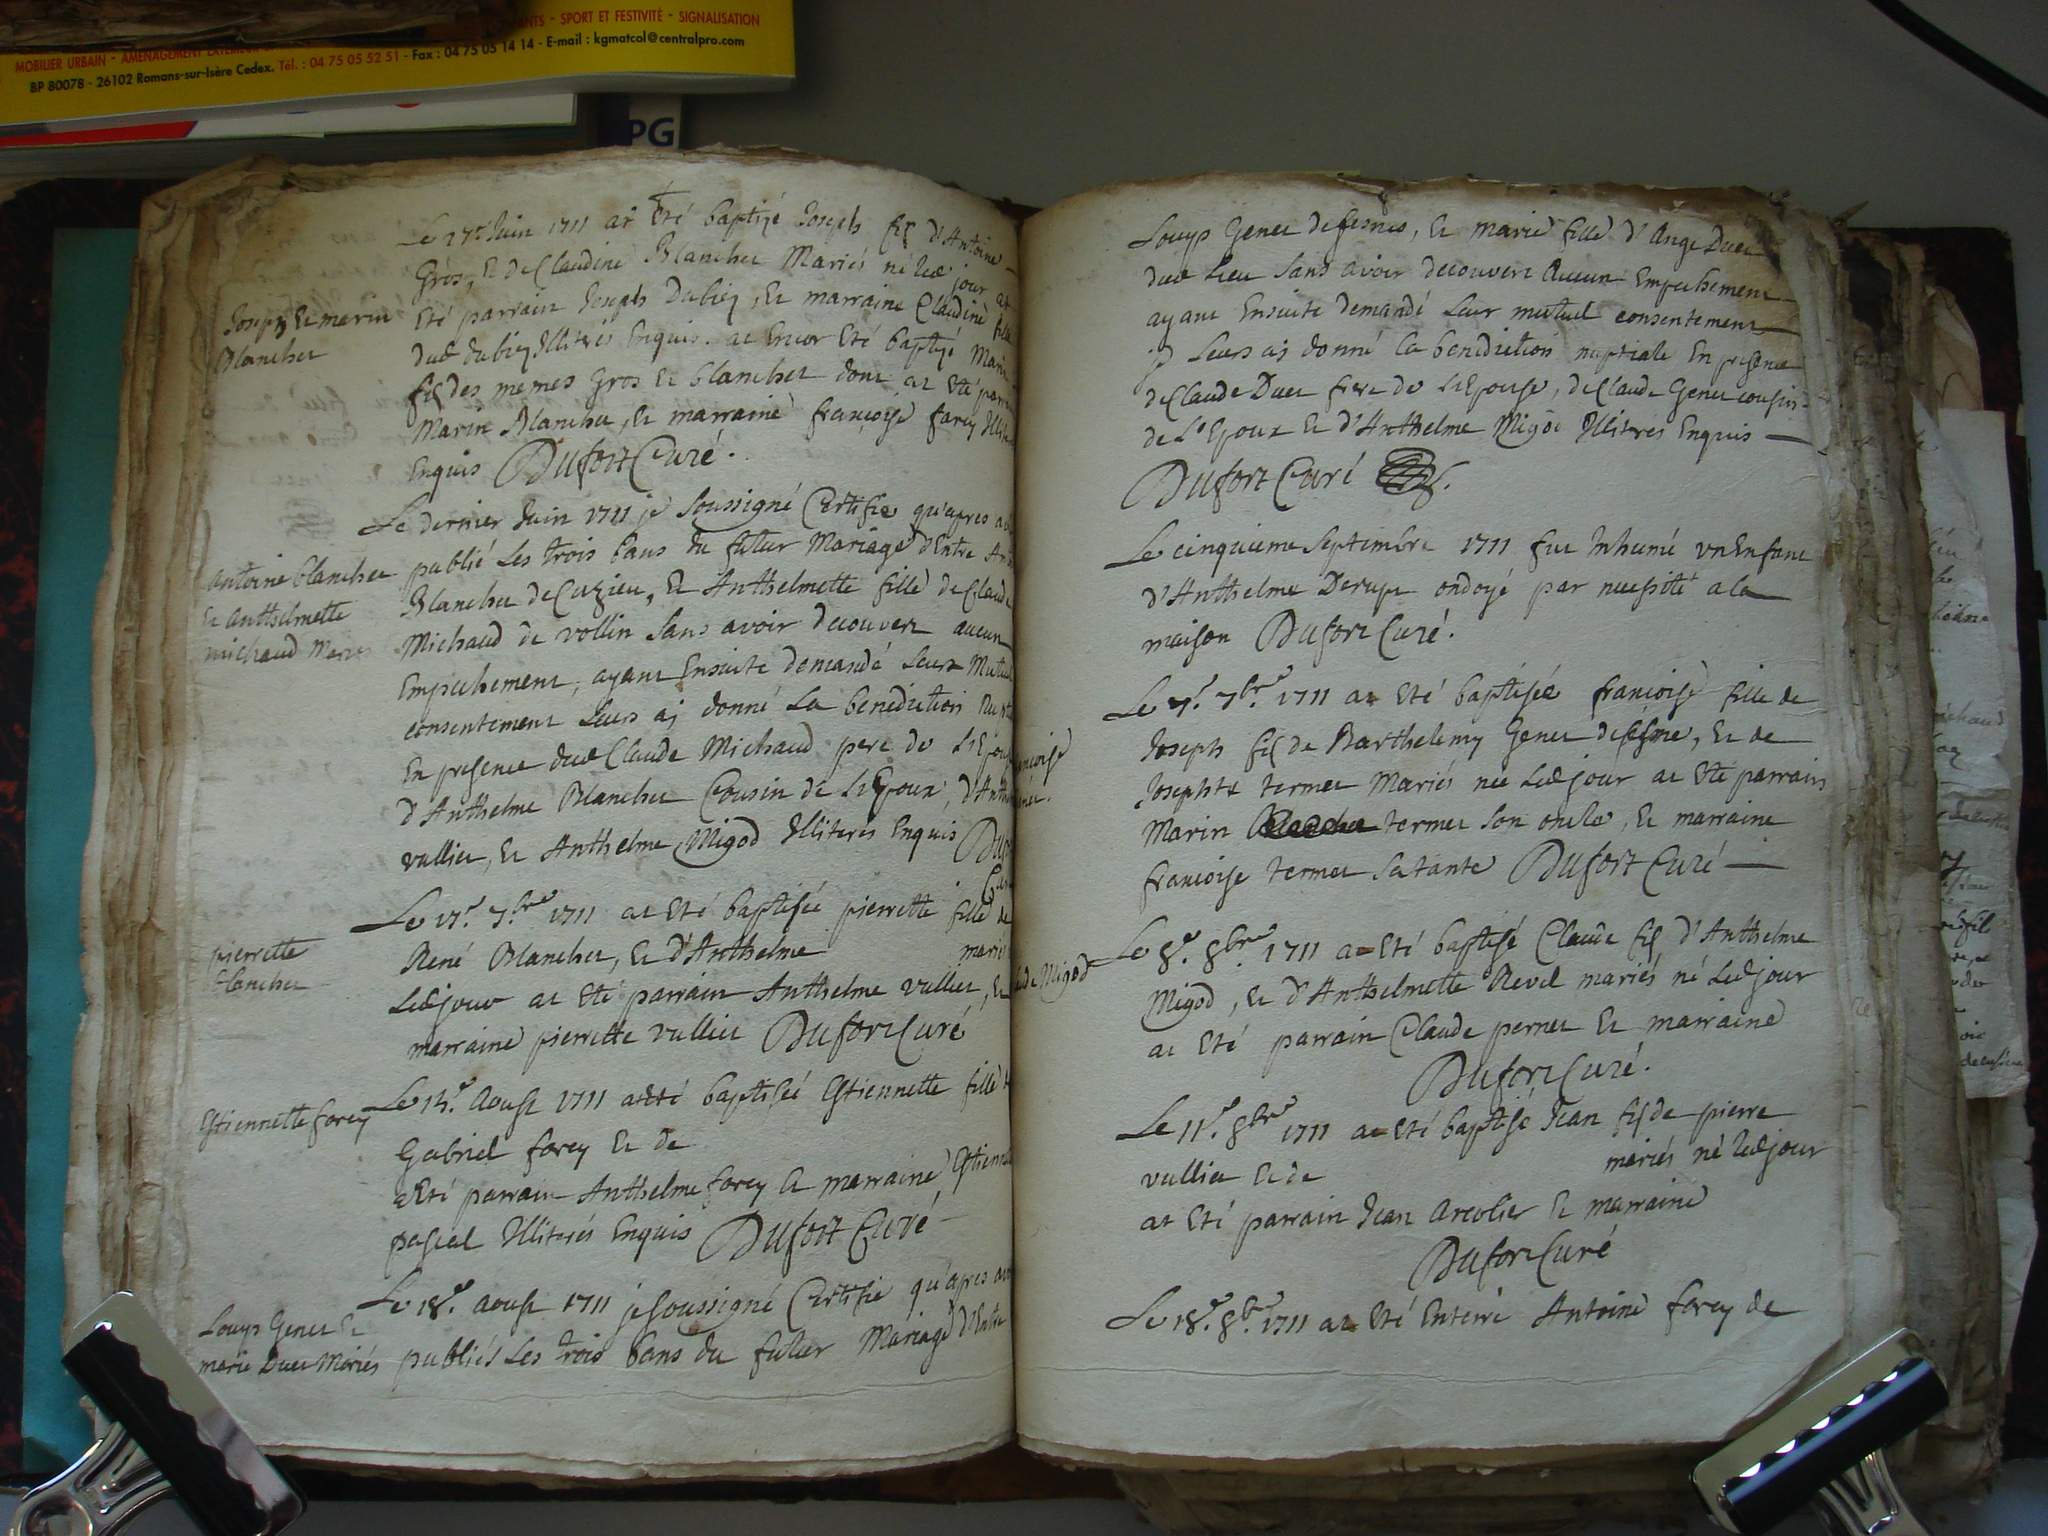 ANTS - SPORT ET FESTIVITÉ - SIGNALISATION
MOBILIER URBAIN - AMÉNAGEMENT
BP 80078 - 26102 Romans-sur-Isère Cedex. Tél. : 04 75 05 52 51 - Fax : 04 75 05 14 14 - E-mail : kgmatcol@centralpro.com
PG
Le 27e Juin 1711 at Eté baptizé Joseph fils d'Antoine
Gros, Et de Claudine Blanchet Mariés né led jour at
Joseph Et marin
Blanchet
Eté parrain Joseph Dubiez, Et marraine Claudine fille
dud dubiez Illiterés Enquis. at Encor Eté baptizé Marin
fils des memes Gros Et blanchet dont at Eté
Marin Blanchet, Et marraine françoise forey
Enquis Dufort Curé.
Le dernier Juin 1711 je Soussigné Certifie qu'apres
Antoine blanchet
Et Anthelmette
michaud Mariés
publié Les trois bans du futur Mariage d'Entre
Blanchet de Cuzieu, Et Anthelmette fille de Claude
Michaud de vollin Sans avoir decouvert aucun
Empechement, ayant Ensuite demandé Leur Mutuel
consentement Leurs aj donné La benediction
En presence dud Claude Michaud pere de
d'Anthelme Blanchet Cousin de L'Epoux,
vullier, Et Anthelme Migod Illiterés Enquis
Le 17e 7bre 1711 at Eté baptisée pierrette fille de
pierrette
blanchet
René Blanchet, Et d'Anthelme mariés
Ledjour at Eté parrain Anthelme vullier, Et
marraine pierrette vullier Dufort Curé
Le 14e Aoust 1711 at Eté baptisée Estiennette fille
Estiennette forey
Gabriel forey Et de
at Eté parrain Anthelme forey Et marraine
pascal Illiterés Enquis Dufort Curé
Le 18e aoust 1711 je soussigné Certifie qu'apres
Louys Genet Et
marie Duet Mariés
publiés Les trois bans du futur Mariage d'Entre
Louys Genet de, Et marie fille d'Ange Duet
dud Lieu Sans avoir decouvert Aucun Empechement
ayant Ensuite demandé Leur mutuel consentement
Leurs aj donné la benediction nuptiale En presence
de Claude Duet frere de L'Epouse, de Claude Genet cousin
de L'Epoux Et d'Anthelme Migod Illiterés Enquis
Dufort Curé
Le cinquieme Septembre 1711 fut Inhumé un Enfant
d'Anthelme ondoyé par necessité a la
maison Dufort Curé.
Le 7e 7bre 1711 at Eté baptisée francoise fille de
Joseph fils de Barthelemy Genet de, Et de
Josephte termet Mariés née Ledjour at Eté parrain
Marin termet Son oncle, Et marraine
francoise termet Sa tante Dufort Curé
Le 8e 8bre 1711 at Eté baptisé Claude fils d'Anthelme
de Migod
Migod, Et d'Anthelmette Revel mariés né Ledjour
at Eté parrain Claude pernet Et marraine
Dufort Curé.
Le 11e 8bre 1711 at Eté baptisé Jean fils de pierre
vullier Et de mariés né Ledjour
at Eté parrain Jean Et marraine
Dufort Curé
Le 18e 8bre 1711 at Eté Enterré Antoine forey de